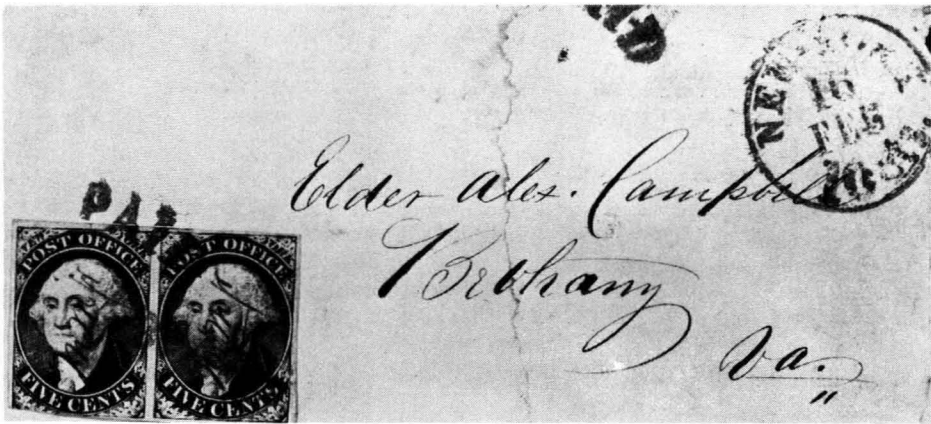 PAI
NEW
16
FEB
10cts.
Elder Alex. Campbell
Bethany
Va.
POST OFFICE
FIVE CENTS
POST OFFICE
FIVE CENTS